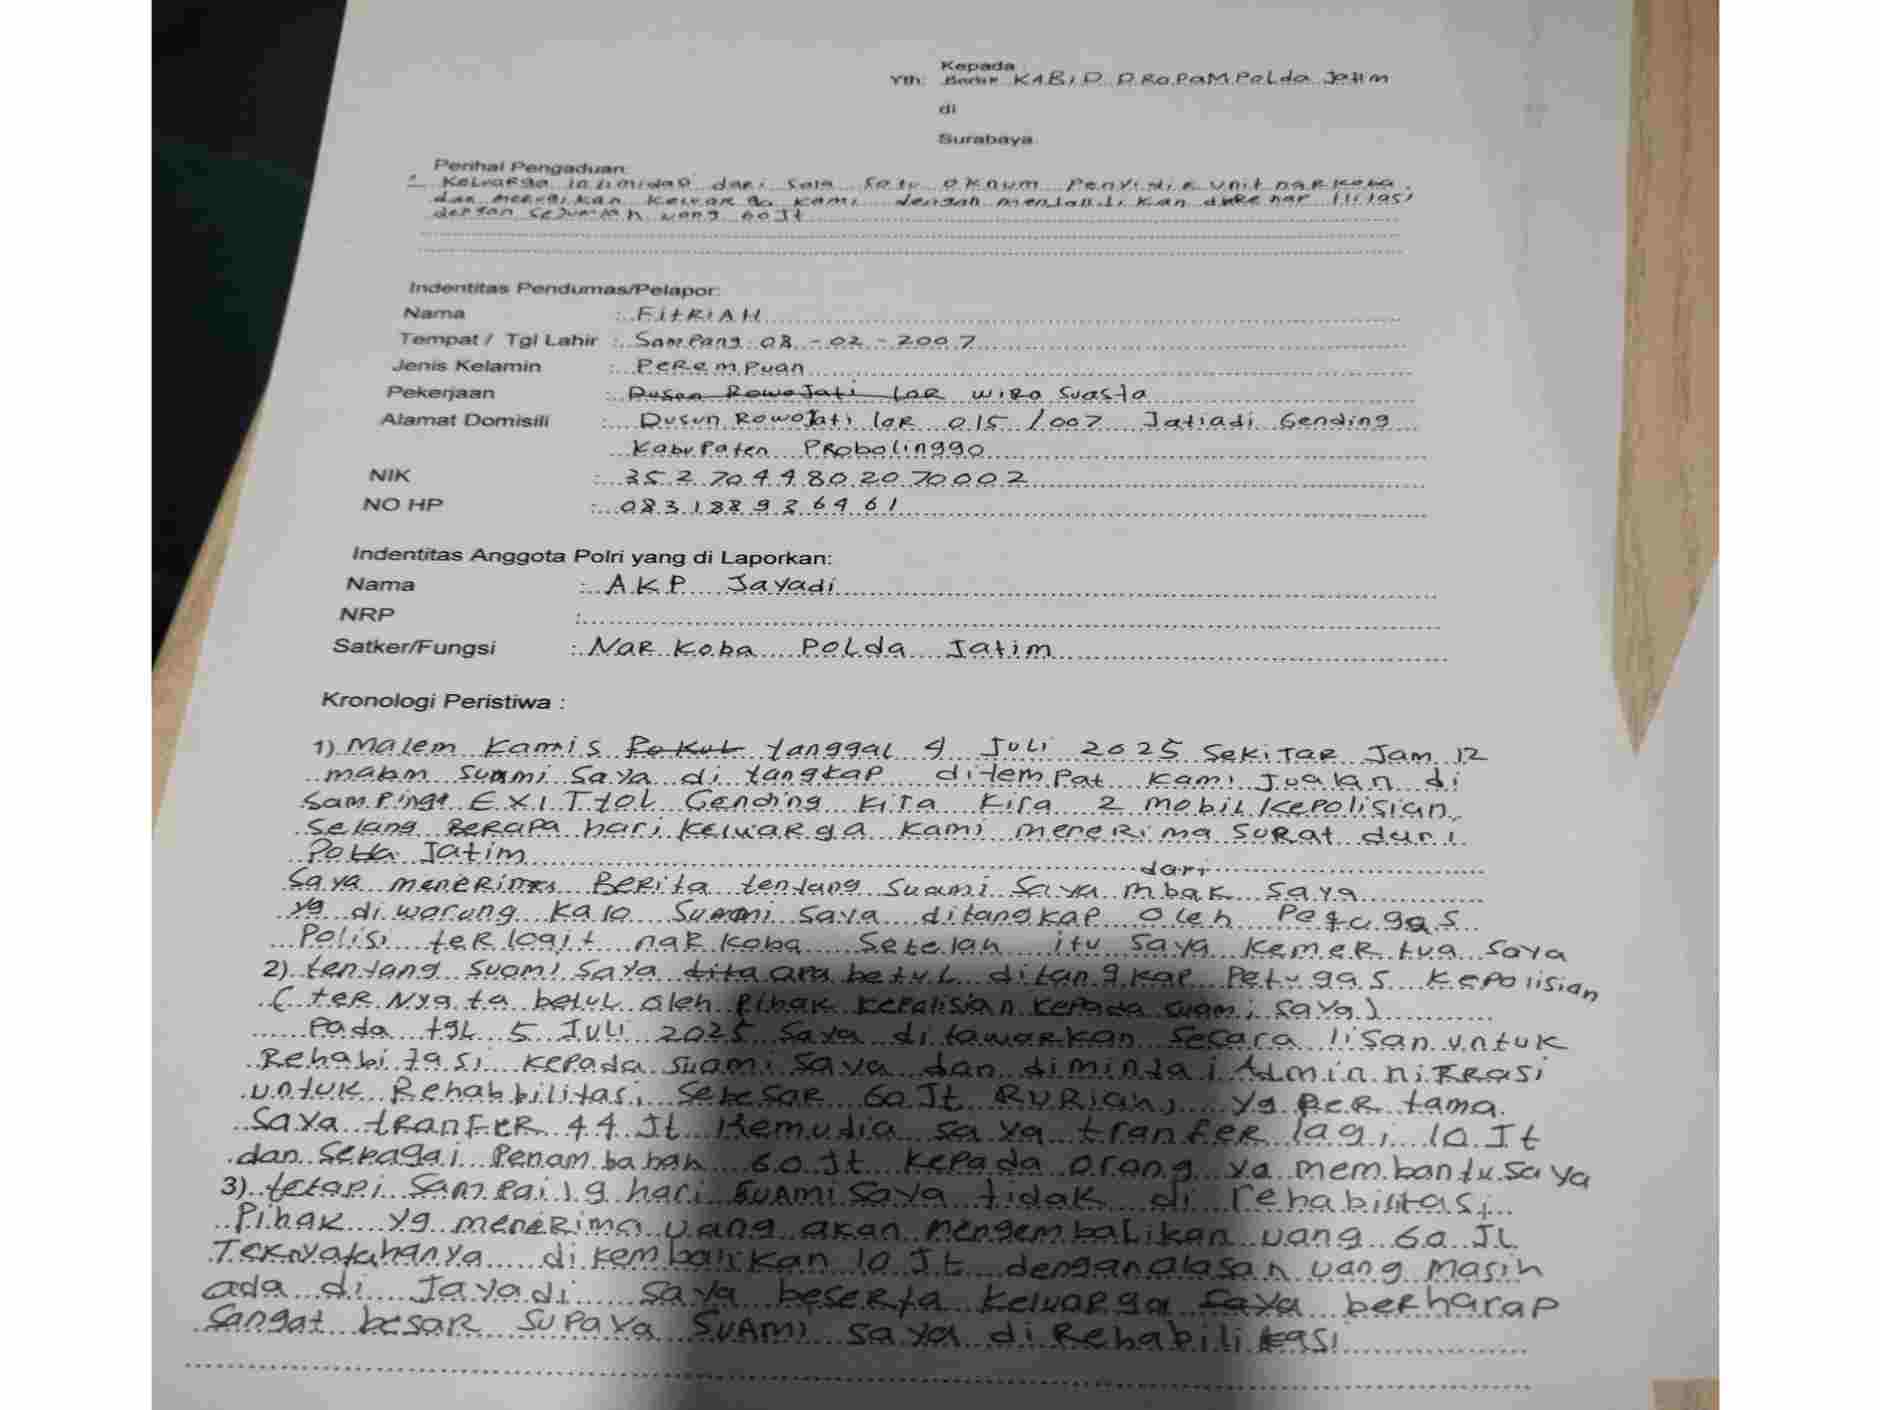 Kepada
Yth. KABID PROPAM POLda Jatim
di
Surabaya
Perihal Pengaduan:
Keluarga intimidap dari sala satu oknum Penyidik unit narkoba
dan merugikan keluarga kami dengan menjandikan direhap
dengan sejumlah uang 60 Jt
Indentitas Pendumas/Pelapor:
Nama : FitRiAH
Tempat / Tgl Lahir : SamPang 08 - 02 - 2007
Jenis Kelamin : PeRemPuan
Pekerjaan : Dusun RowoJati loR wiRa Suasta
Alamat Domisili : Dusun RowoJati loR 015 /007 Jatiadi Gending
KabuPaten PRobolinggo
NIK : 3527044802070002
NO HP : 083188936461
Indentitas Anggota Polri yang di Laporkan:
Nama : AKP Jayadi
NRP :
Satker/Fungsi : NaRkoba POLda Jatim
Kronologi Peristiwa :
1) Malem kamis tanggal 4 Juli 2025 SekiTAR Jam 12
malam suami saya di tangkap ditempat kami jualan di
samping EXIT tol Gending kira kira 2 mobil kepolisian
selang BeRAPA hari keluarga kami meneRima suRat dari
Polda Jatim
dari
saya meneRima BeRita tentang suami saya mbak saya
yg di warung kalo suami saya ditangkap oleh Petugas
Polisi terlogit narkoba setelah itu saya kemeRtua saya
2) tentang suami saya betul ditangkap Petugas kepolisian
( teRNyata betul oleh Pihak kepolisian kepada suami saya )
Pada tgl 5 JULI 2025 saya ditawarkan secara lisan untuk
Rehabitasi kepada suami saya dan dimintai AdminniRRasi
untuk Rehabbilitasi sebesaR 60 Jt RuRiah, yg PeRtama
saya tRanfeR 44 Jt kemudia saya tranfer lagi 10 Jt
dan sebagai Penambahan 60 Jt kepada orang yg membantu saya
3) tetapi sampai 19 hari suami saya tidak di rehabilitasi
Pihak yg meneRima uang akan mengembalikan uang 60 Jt
Teknyatahanya dikembalikan 10 Jt dengan alasan uang masih
ada di Jayadi saya beserta keluarga saya berharap
sangat besar supaya suami saya di Rehabilitasi